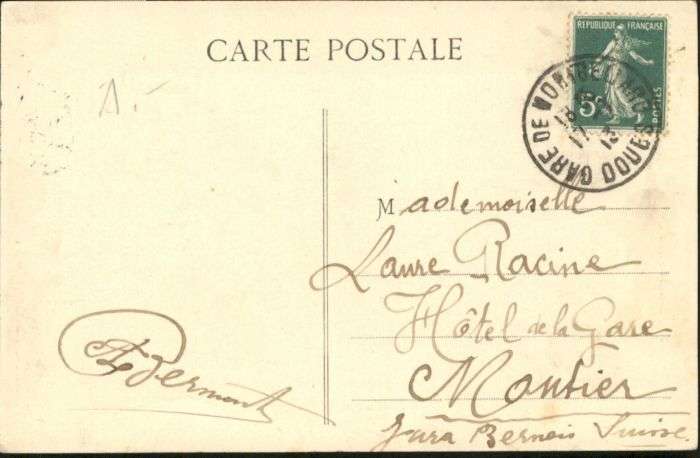 CARTE POSTALE
REPUBLIQUE FRANÇAISE
5c
POSTES
GARE DE DOUBS
A.-
Mademoiselle
Laure Racine
Hôtel de la Gare
Moutier
Jura Bernois Suisse.